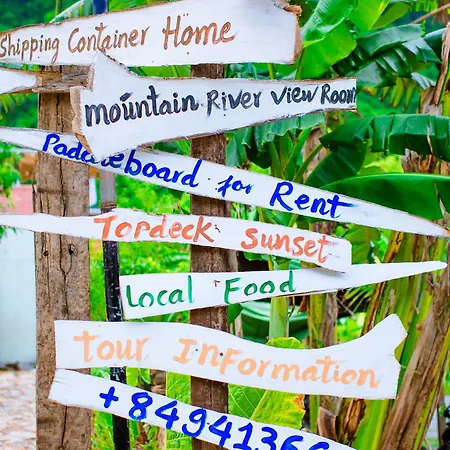 Shipping Container Home
mountain River view Room
Paddleboard for Rent
Topdeck sunset
Local Food
tour Information
+84941366